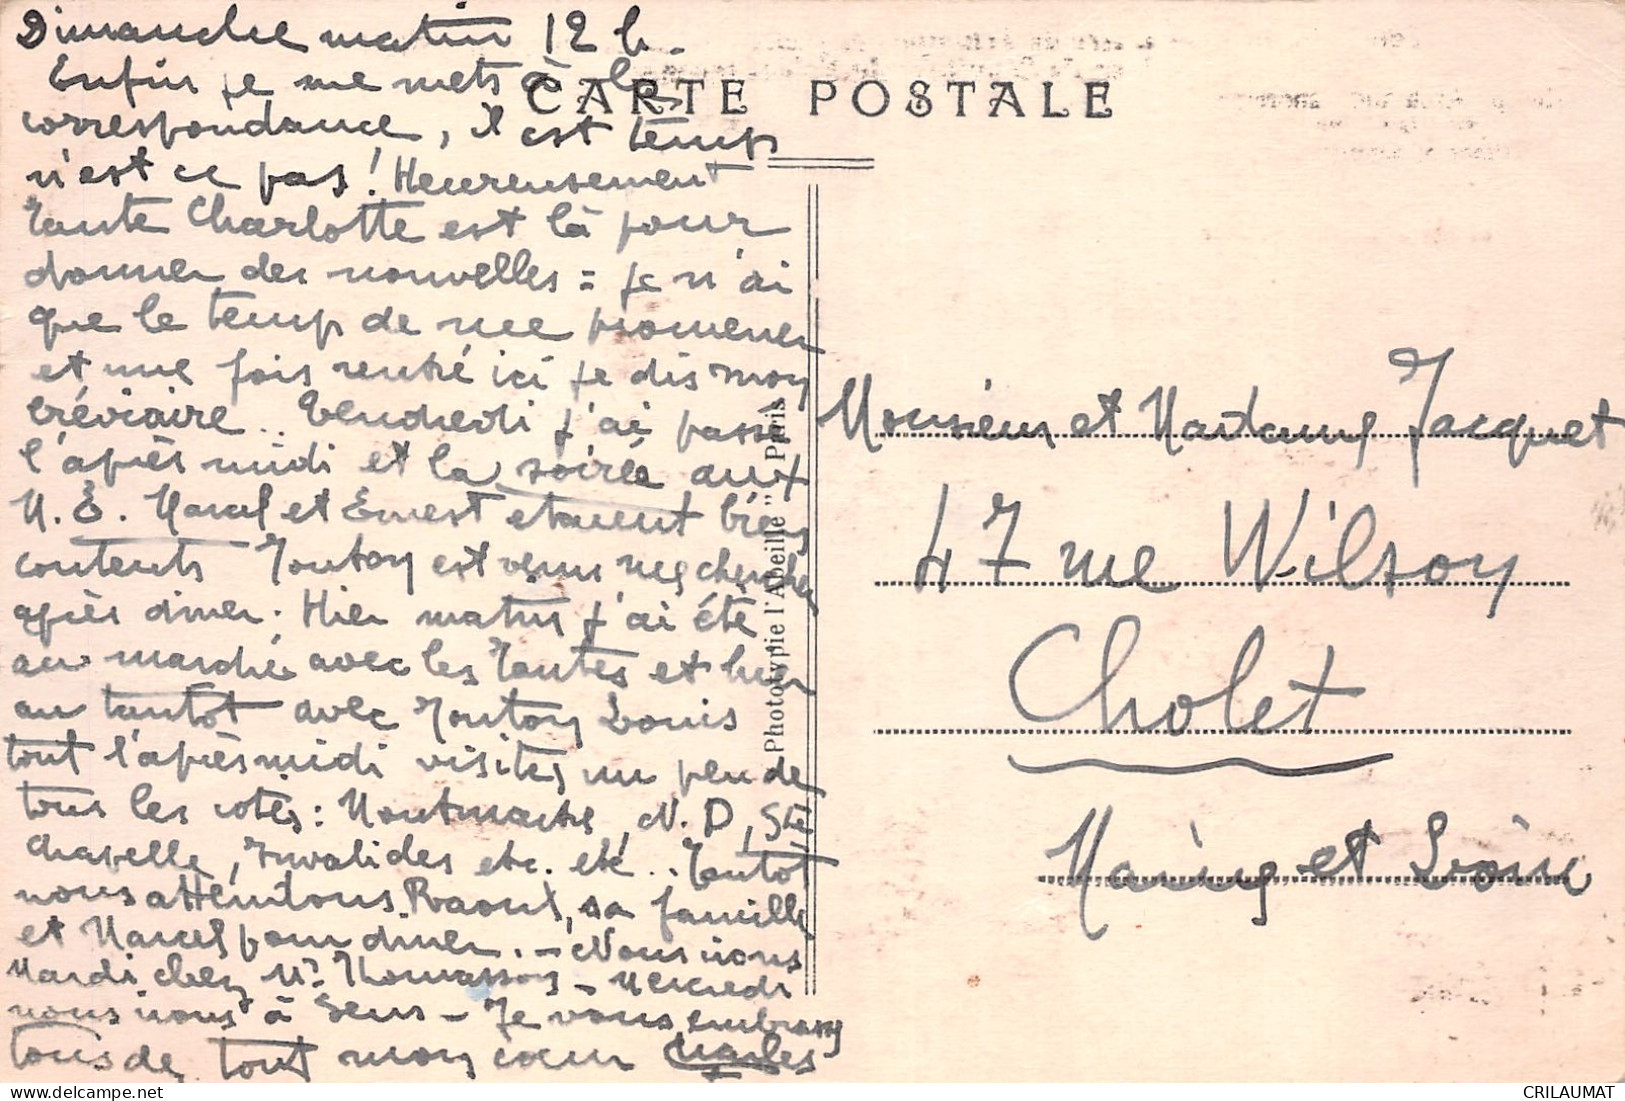 Dimanche matin 12 h.
Enfin je me mets à la
CARTE POSTALE
correspondance, il est temps
n'est ce pas ! Heureusement
Tante Charlotte est là pour
donner des nouvelles = je n'ai
que le temps de me promener
et une fois rentré ici je dis mon
bréviaire.. Vendredi j'ai passé
l'après midi et la soirée aux
M. E. Marcel et Ernest étaient bien
contents Tonton est venu me chercher
après diner. Hier matin j'ai été
au marché avec les Tantes et hier
au tantôt avec Tonton Louis
tout l'après midi visites un peu de
tous les cotés : Montmartre, N. D, Ste
Chapelle, Invalides etc. etc.. Tantot
nous attendons Raoul, sa famille
et Marcel pour diner. - Nous irons
Mardi chez Mr Thomasson - Mercredi
nous irons à Sens - Je vous embrasse
tous de tout mon cœur Charles
Phototypie l'Abeille" Paris
Monsieur et Madame Jacquet
47 rue Wilson
Cholet
Maine et Loire
CRILAUMAT